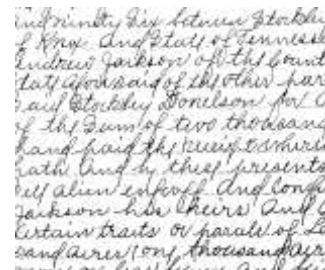 and ninety Six between Stockley
of Knox and State of Tennessee
Andrew Jackson of the Count
State aforesaid of the other par
Said Stockley Donelson for
of the Sum of two thousand
hand paid the
hath and by these presents
alien enfeoff and Conf
Jackson his heirs and
Certain traits or parcels of L
sand acres one thousand acr